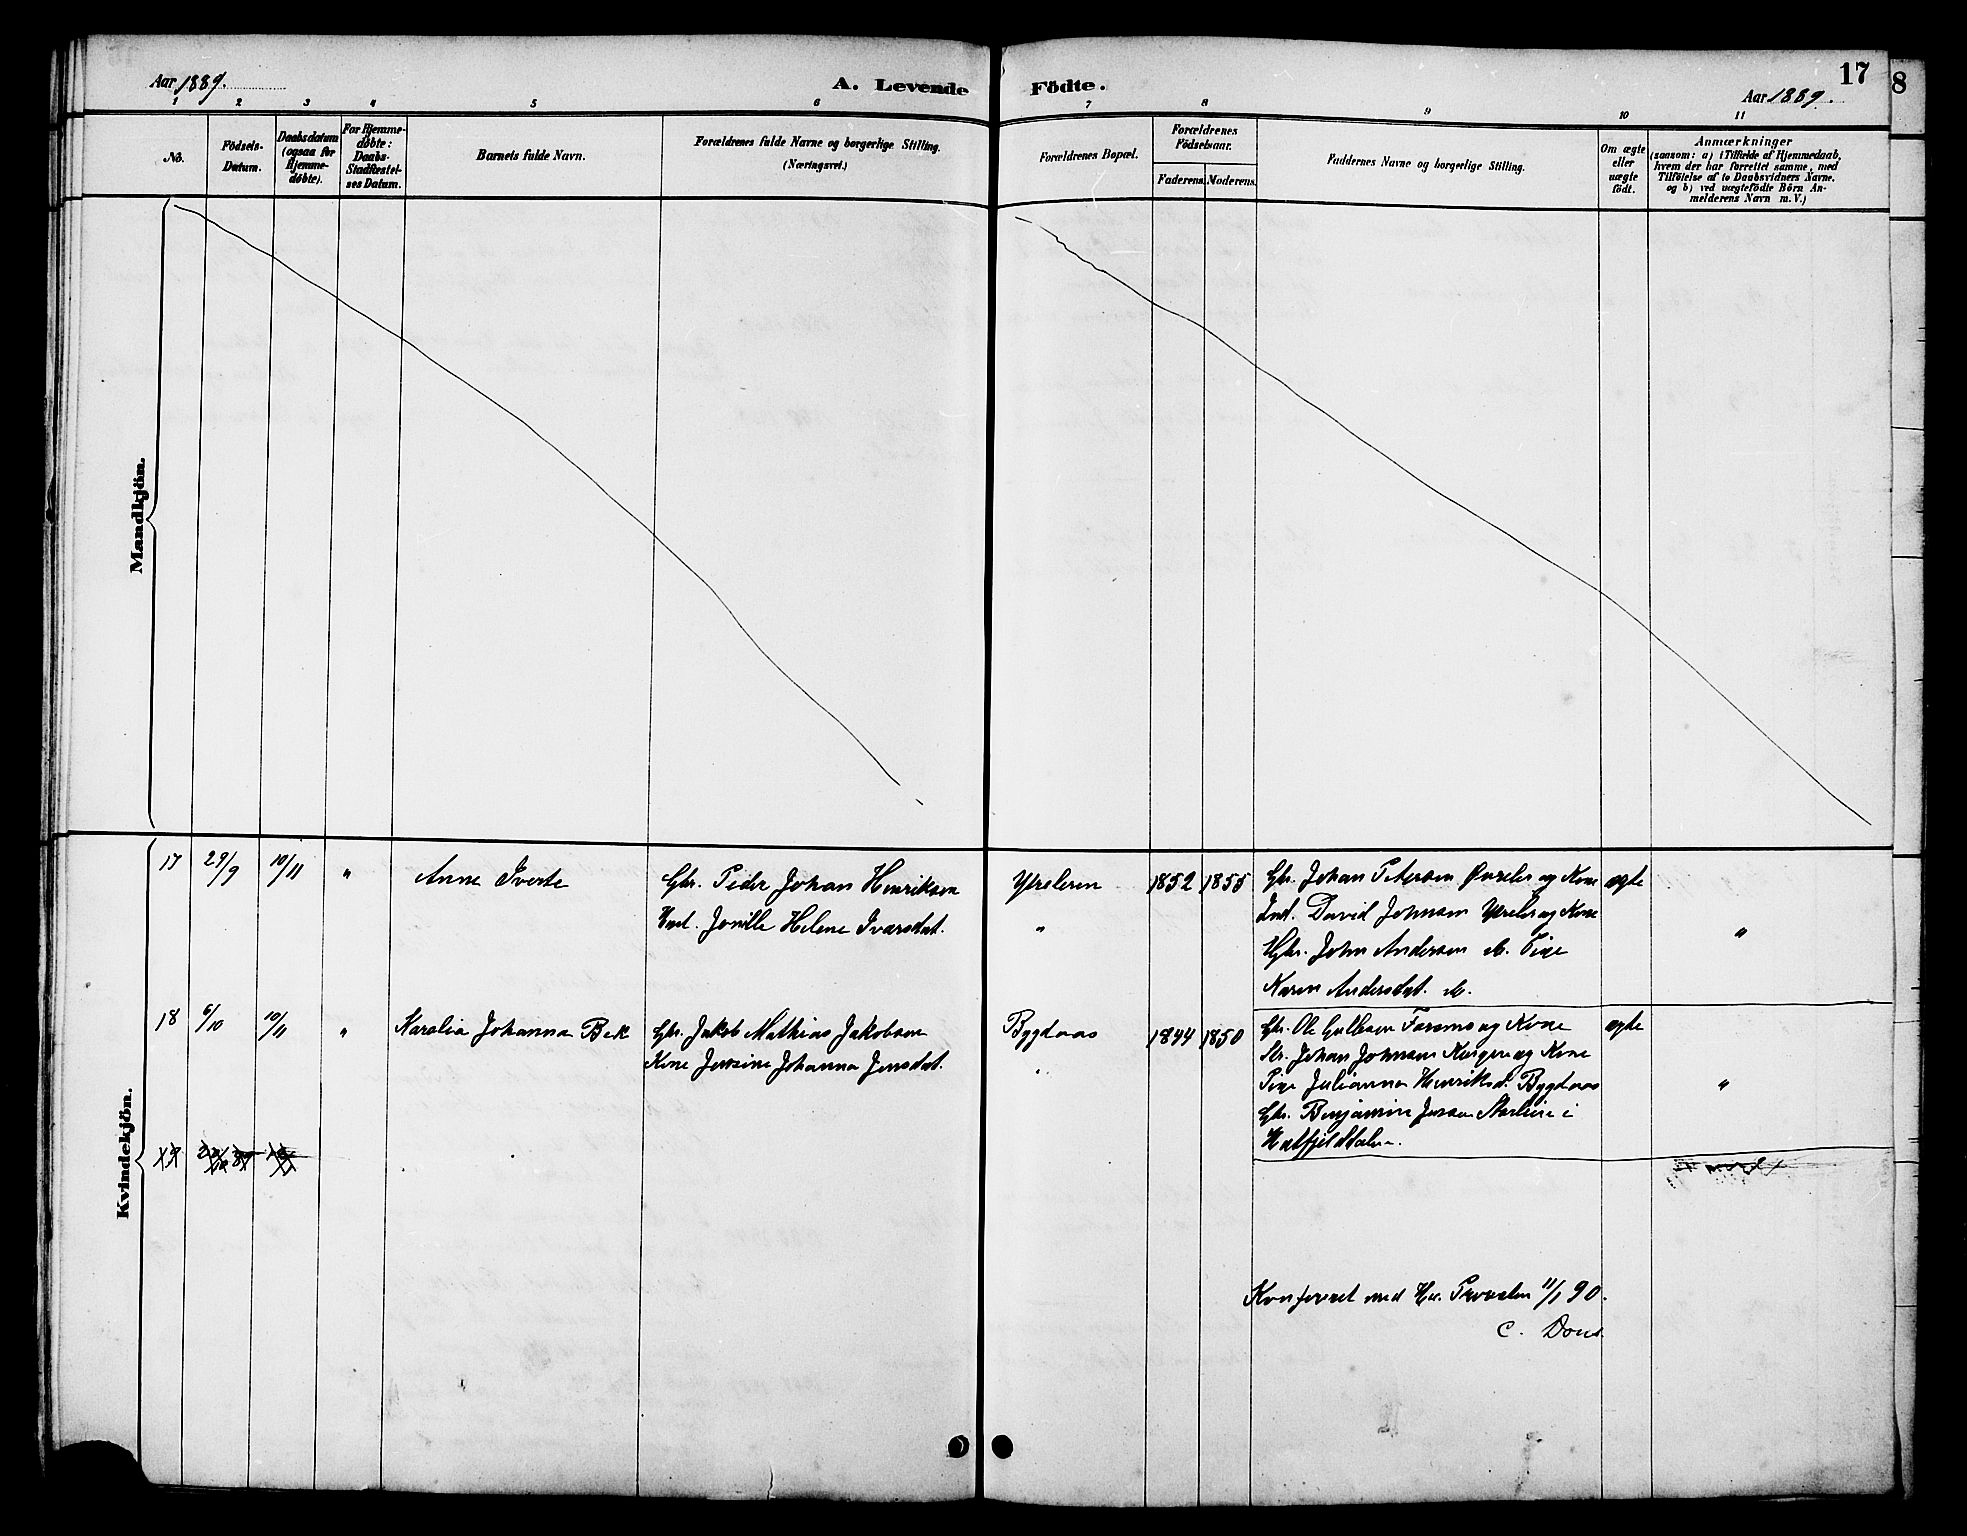 Aar 1889.
A. Levende Födte.
17
8
Aar 1889.
1 2 3 4 5 6 7 8 9 10 11
No.
Födsels-
Datum.
Daabsdatum
(ogsaa for
Hjemme-
döbte).
For Hjemme-
döbte:
Daabs-
Stadfæstel-
ses Datum.
Barnets fulde Navn.
Forældrenes fulde Navne og borgerlige Stilling.
(Næringsvei.)
Forældrenes Bopæl.
Forældrenes
Födselsaar.
Faderens. Moderens.
Faddernes Navne og borgerlige Stilling.
Om ægte
eller
uægte
födt.
Anmærkninger
(saasom: a) i Tilfælde af Hjemmedaab,
hvem der har forrettet samme, med
Tilföielse af to Daabsvidners Navne.
og b) ved uægtefödte Börn An-
melderens Navn m. V.)
Mandkjön.
Kvindekjön.
17 29/9 10/11 " Anne Iverte
Gbr. Peder Johan Henriksen
Hust. Jonille Helene Ivarsdat.
"
1852 1855
Gbr. Johan Petersen og Kone
Ind. David Johnsen og Kone
John Andersen Pige
Karen Andersdat.
ægte
"
18 6/10 10/11 " Karolia Johanna Bek
Gbr. Jakob Mathias Jakobsen
Kone Jensine Johanna Jensdat.
Bygdaas
"
1844 1850
Gbr. Ole og Kone
Johan Johnsen og Kone
Pige Julianna Henriksd. Bygdaas
Gbr. Benjamin Jensen i
Hatfjelddalen.
ægte
"
Konfereret med Hr. Provsten 11/1 90.
C. Dons.